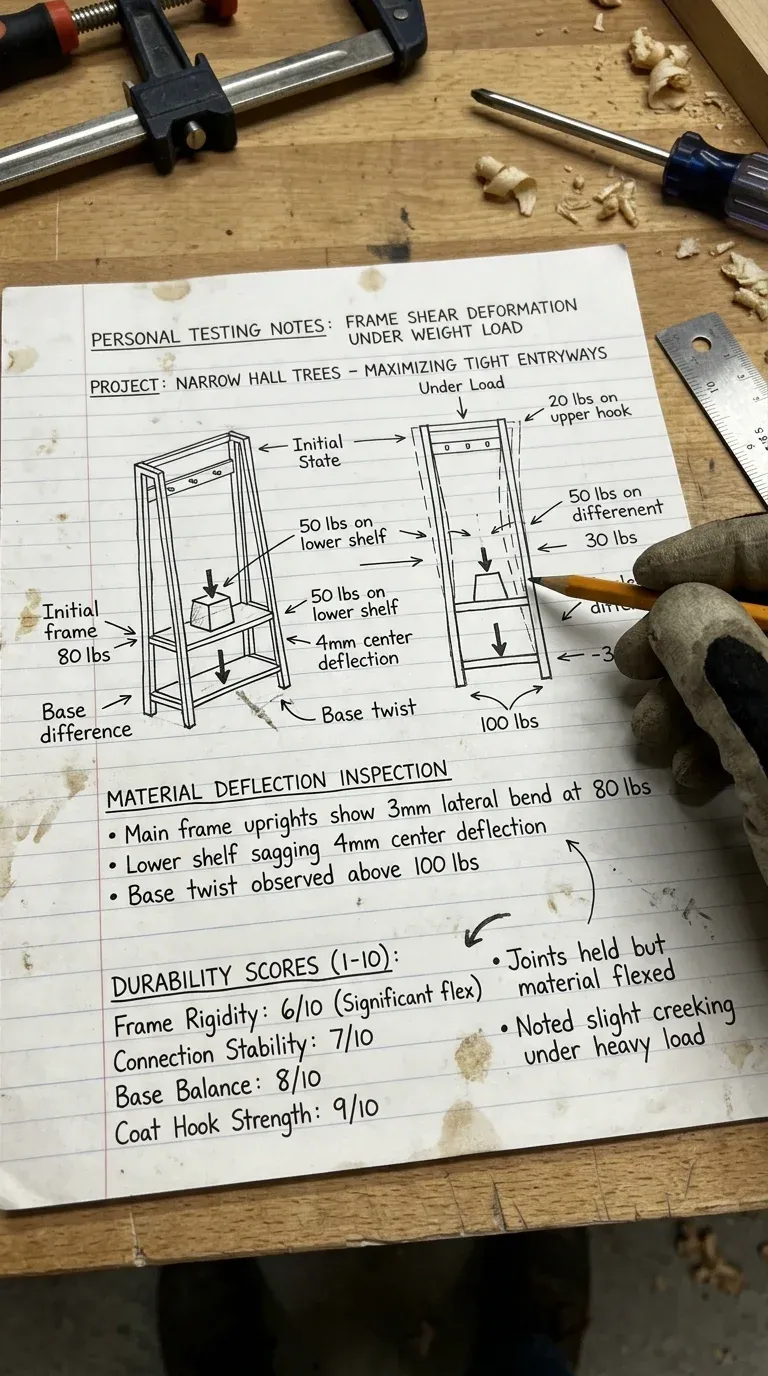 PERSONAL TESTING NOTES: FRAME SHEAR DEFORMATION
UNDER WEIGHT LOAD
PROJECT: NARROW HALL TREES – MAXIMIZING TIGHT ENTRYWAYS
Under Load
20 lbs on
upper hook
Initial
State
50 lbs on
lower shelf
50 lbs on
differenent
30 lbs
Initial
frame
80 lbs
50 lbs on
lower shelf
4mm center
deflection
Base
difference
Base twist
100 lbs
MATERIAL DEFLECTION INSPECTION
• Main frame uprights show 3mm lateral bend at 80 lbs
• Lower shelf sagging 4mm center deflection
• Base twist observed above 100 lbs
DURABILITY SCORES (1-10):
Frame Rigidity: 6/10 (Significant flex)
Connection Stability: 7/10
Base Balance: 8/10
Coat Hook Strength: 9/10
• Joints held but
material flexed
• Noted slight creeking
under heavy load